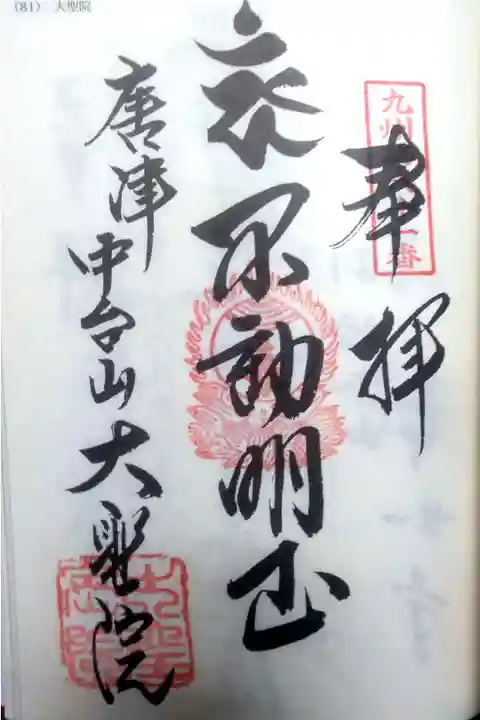 (81) 大聖院
九州
番
奉拝
不動明王
唐津 中台山 大聖院